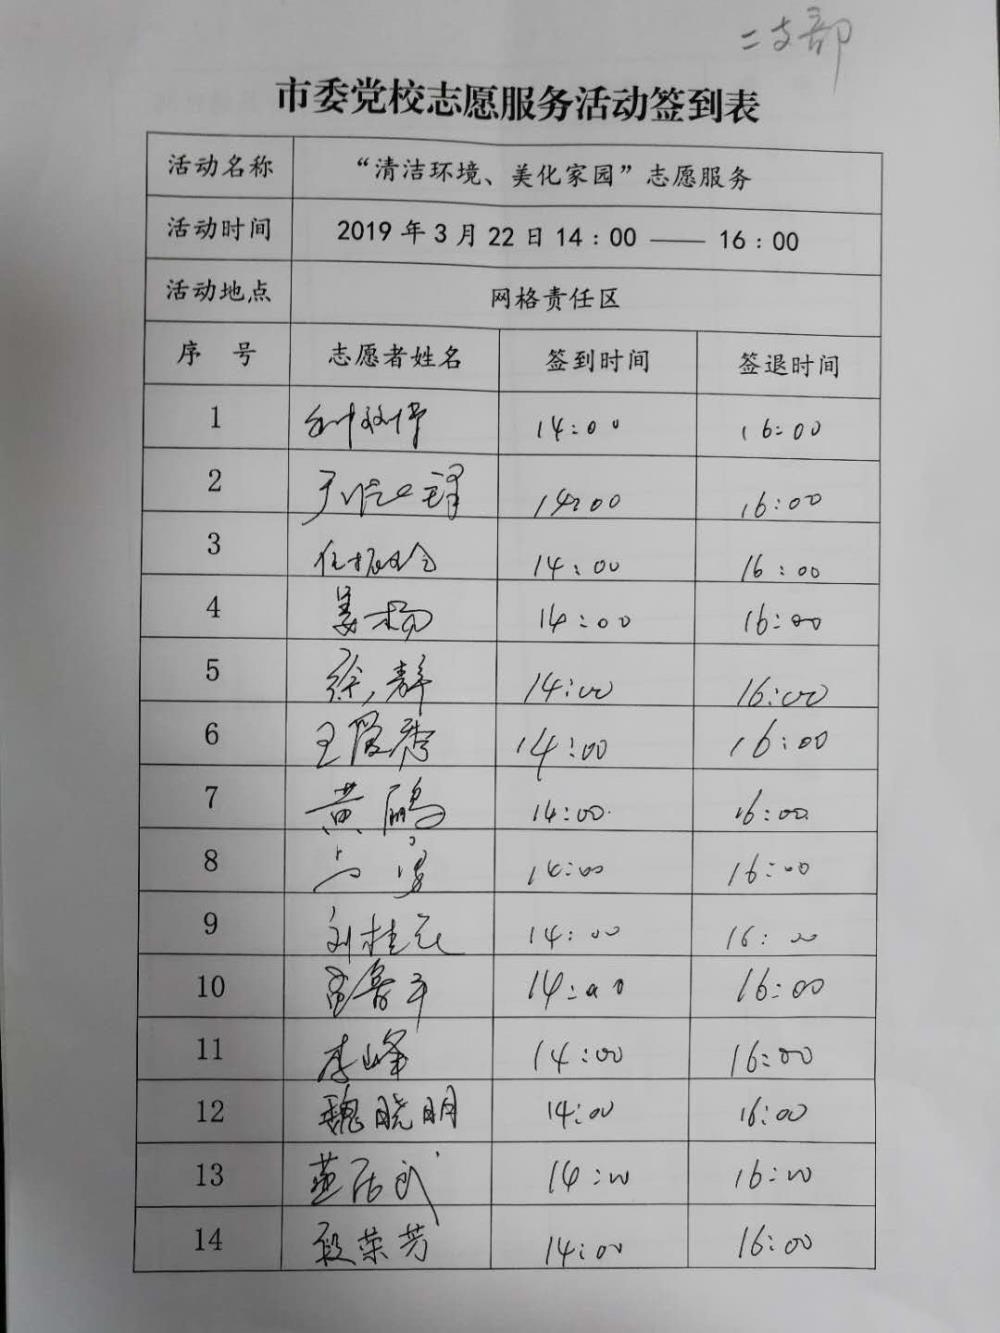 二支部
市委党校志愿服务活动签到表
活动名称 “清洁环境、美化家园”志愿服务
活动时间 2019年3月22日14：00 —— 16：00
活动地点 网格责任区
序 号 志愿者姓名 签到时间 签退时间
1 14:00 16:00
2 14:00 16:00
3 14:00 16:00
4 姜杨 14:00 16:00
5 徐静 14:00 16:00
6 14:00 16:00
7 黄鹂 14:00 16:00
8 14:00 16:00
9 刘桂元 14:00 16:00
10 14:00 16:00
11 李峰 14:00 16:00
12 魏晓明 14:00 16:00
13 14:00 16:00
14 段荣芳 14:00 16:00